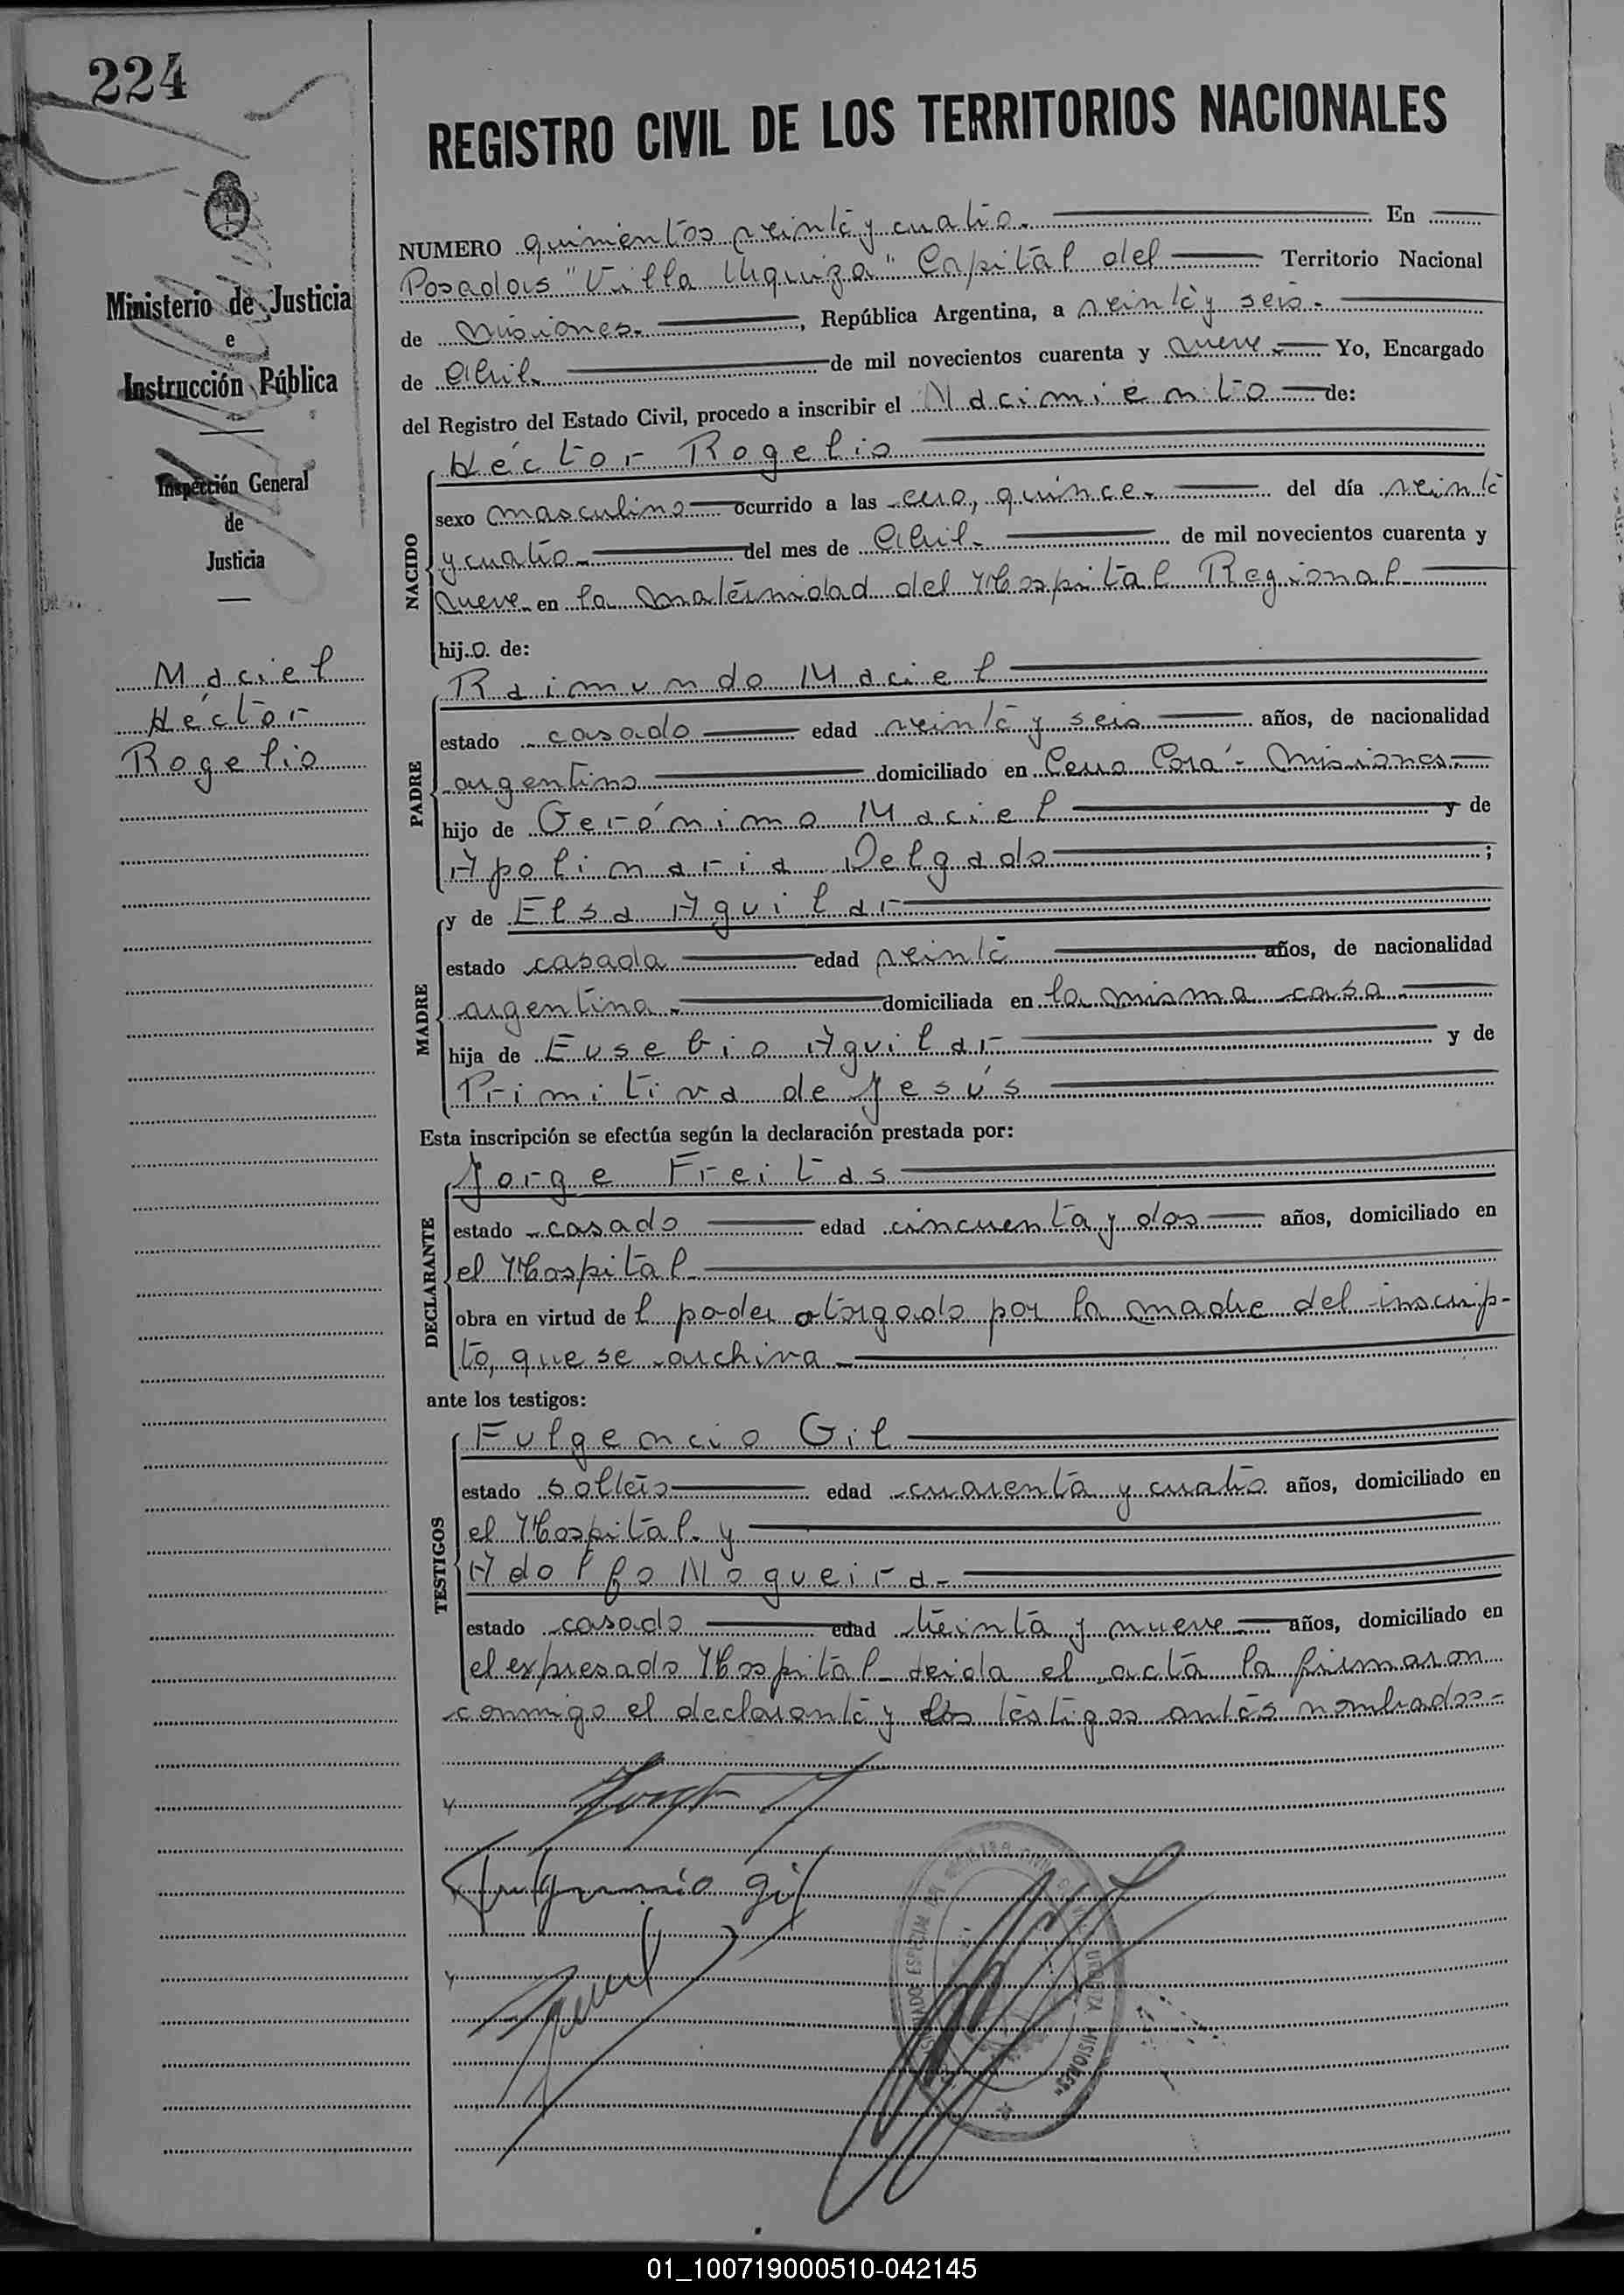 224
REGISTRO CIVIL DE LOS TERRITORIOS NACIONALES
Ministerio de Justicia
e
Instrucción Pública
Inspección General
de
Justicia
Maciel
Héctor
Rogelio
NUMERO quinientos veinte y cuatro. En
Posadas "Villa Urquiza" Capital del Territorio Nacional
de Misiones. , República Argentina, a veinte y seis.
de Abril. de mil novecientos cuarenta y nueve. Yo, Encargado
del Registro del Estado Civil, procedo a inscribir el Nacimiento de:
NACIDO
Héctor Rogelio
sexo masculino ocurrido a las cero, quince. del día veinte
y cuatro. del mes de Abril. de mil novecientos cuarenta y
nueve. en la Maternidad del Hospital Regional
hijo. de:
PADRE
Raimundo Maciel
estado casado edad veinte y seis años, de nacionalidad
argentino domiciliado en Cerro Corá - Misiones.
hijo de Gerónimo Maciel y de
Apolinaria Delgado ;
MADRE
y de Elsa Aguilar
estado casada edad veinte años, de nacionalidad
argentina. domiciliada en la misma casa.
hija de Eusebio Aguilar y de
Primitiva de Jesús
Esta inscripción se efectúa según la declaración prestada por:
DECLARANTE
Jorge Freitas
estado casado edad cincuenta y dos años, domiciliado en
el Hospital.
obra en virtud de l poder otorgado por la madre del inscrip-
to, que se archiva.
ante los testigos:
TESTIGOS
Fulgencio Gil
estado soltero edad cuarenta y cuatro años, domiciliado en
el Hospital. y
Adolfo Nogueira-
estado casado edad treinta y nueve años, domiciliado en
el expresado Hospital. Leida el acta la firmaron
conmigo el declarante y los testigos antes nombrados-
Fulgencio Gil
URQUIZA MISIONES
01_100719000510-042145